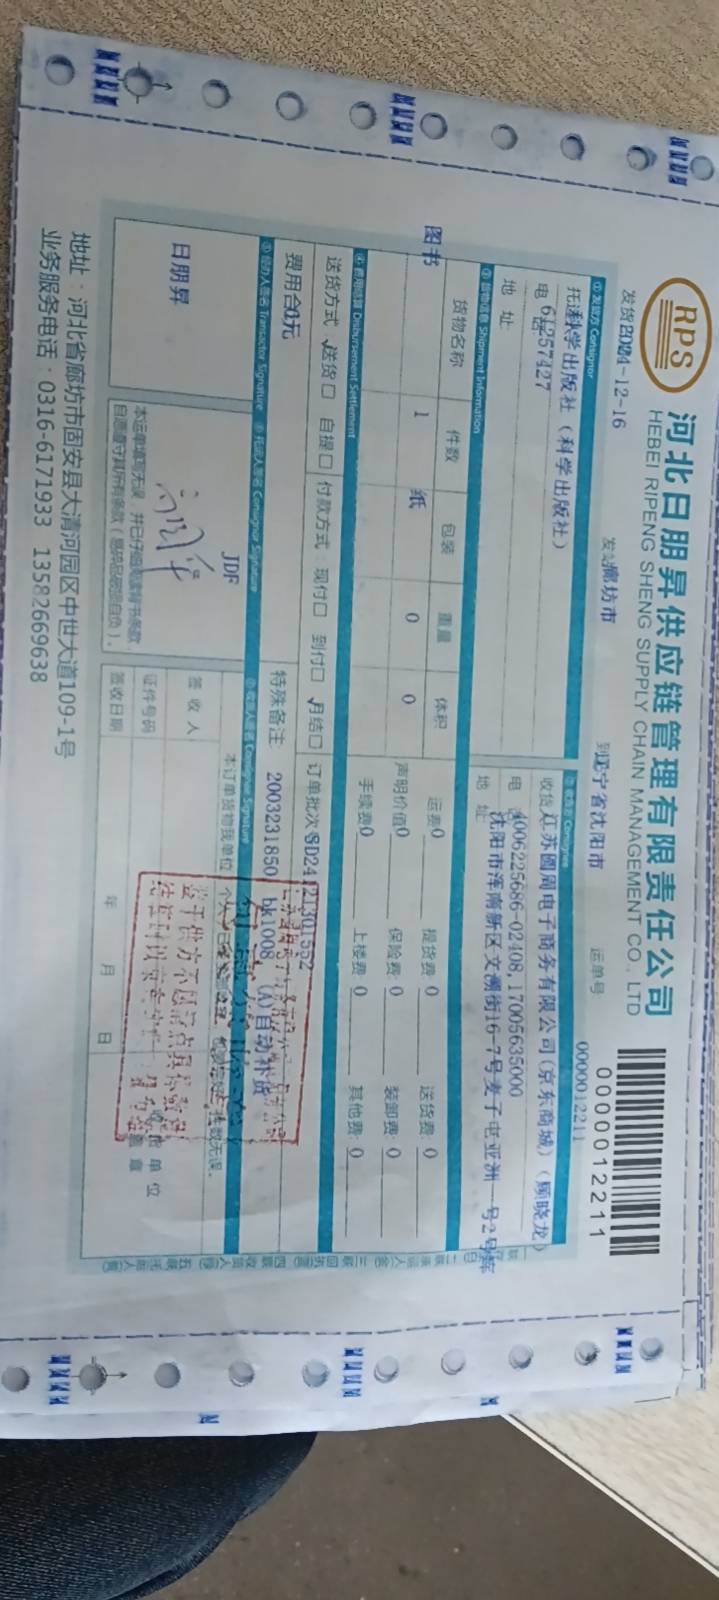 RPS
河北日朋昇供应链管理有限责任公司
HEBEI RIPENG SHENG SUPPLY CHAIN MANAGEMENT CO., LTD
0000012211
发货 2024-12-16
发站 廊坊市
到 辽宁省沈阳市
运单号 0000012211
① 发货方 Consignor
科学出版社（科学出版社）
电话
地 址
② 收货方 Consignee
收货 江苏圆周电子商务有限公司(京东商城)（顾晓龙）
电话 4006225686-02408,17005635000
地 址 沈阳市浑南新区文溯街16-7号麦子屯亚洲一号2号库
③ 货物信息 Shipment Information
货物名称 件数 包装 重量 体积
图书 1 纸 0 0
运费 0 提货费 0 送货费 0
声明价值 0 保险费 0 装卸费 0
手续费 0 上楼费 0 其他费 0
④ 费用结算 Disbursement Settlement
送货方式 送货 自提 付款方式 现付 到付 月结
订单批次 SD24121301552
费用合 0元
特殊备注 2003231850 bk1008 (A)自动补货
⑤ 经办人签名 Transactor Signature
⑥ 托运人签名 Consignor Signature
⑦ 收货人签名 Consignee Signature
日朋昇
JDF
本运单填写无误，并已仔细阅读背书条款
自愿遵守其所有条款（易碎品破损自负）。
本订单货物我单位
件数无误。
签 收 人
证件号码
签收日期 年 月 日
地址：河北省廊坊市固安县大清河园区中世大道109-1号
业务服务电话：0316-6171933 13582669638